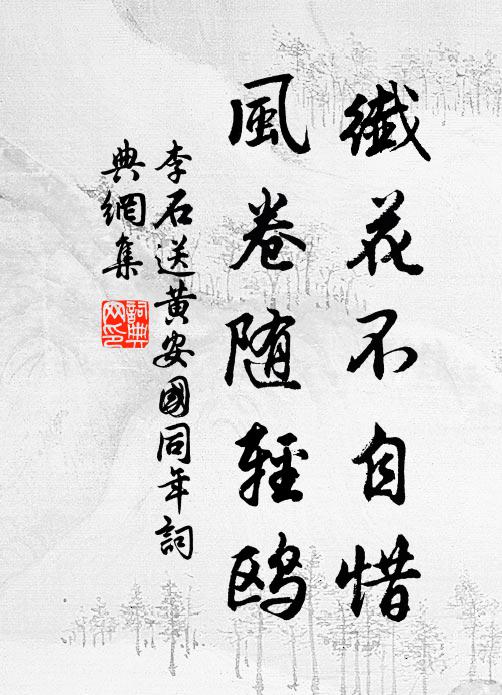 纖花不自惜
風卷随輕鸥
李石送黄安國同年詞
典網集
詞典
网印